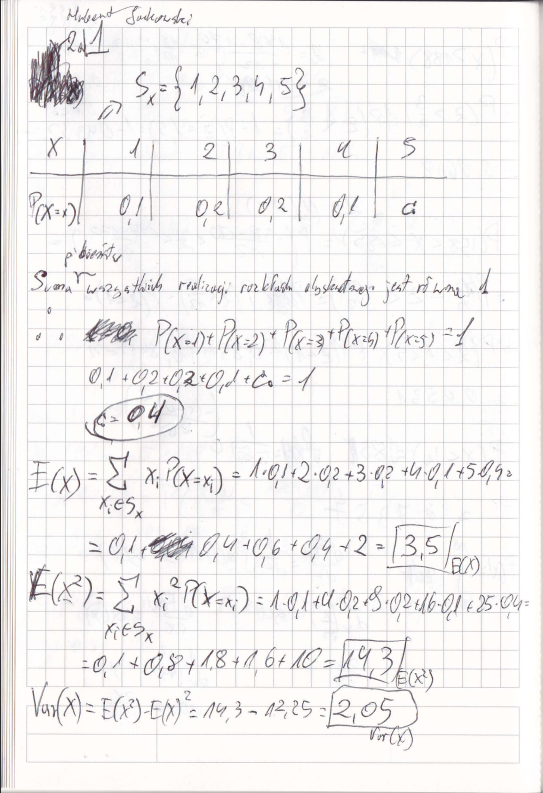 Hubert Sutkowski
Zad 1
S_x = {1, 2, 3, 4, 5}
X 1 2 3 4 5
P(X=x) 0,1 0,2 0,2 0,1 c
p'bieństw
Suma wszystkich realizacji rozkładu dyskretnego jest równa 1
∴ P(X=1)+P(X=2)+P(X=3)+P(X=4)+P(X=5) = 1
0,1+0,2+0,2+0,1+c = 1
c = 0,4
E(X) = ∑ x_i P(X=x_i) = 1·0,1+2·0,2+3·0,2+4·0,1+5·0,4=
x_i∈S_x
= 0,1+ 0,4+0,6+0,4+2 = 3,5 E(X)
E(X²) = ∑ x_i² P(X=x_i) = 1·0,1+4·0,2+9·0,2+16·0,1+25·0,4=
x_i∈S_x
= 0,1+0,8+1,8+1,6+10 = 14,3 E(X²)
Var(X) = E(X²)-E(X)² = 14,3 - 12,25 = 2,05
Var(X)